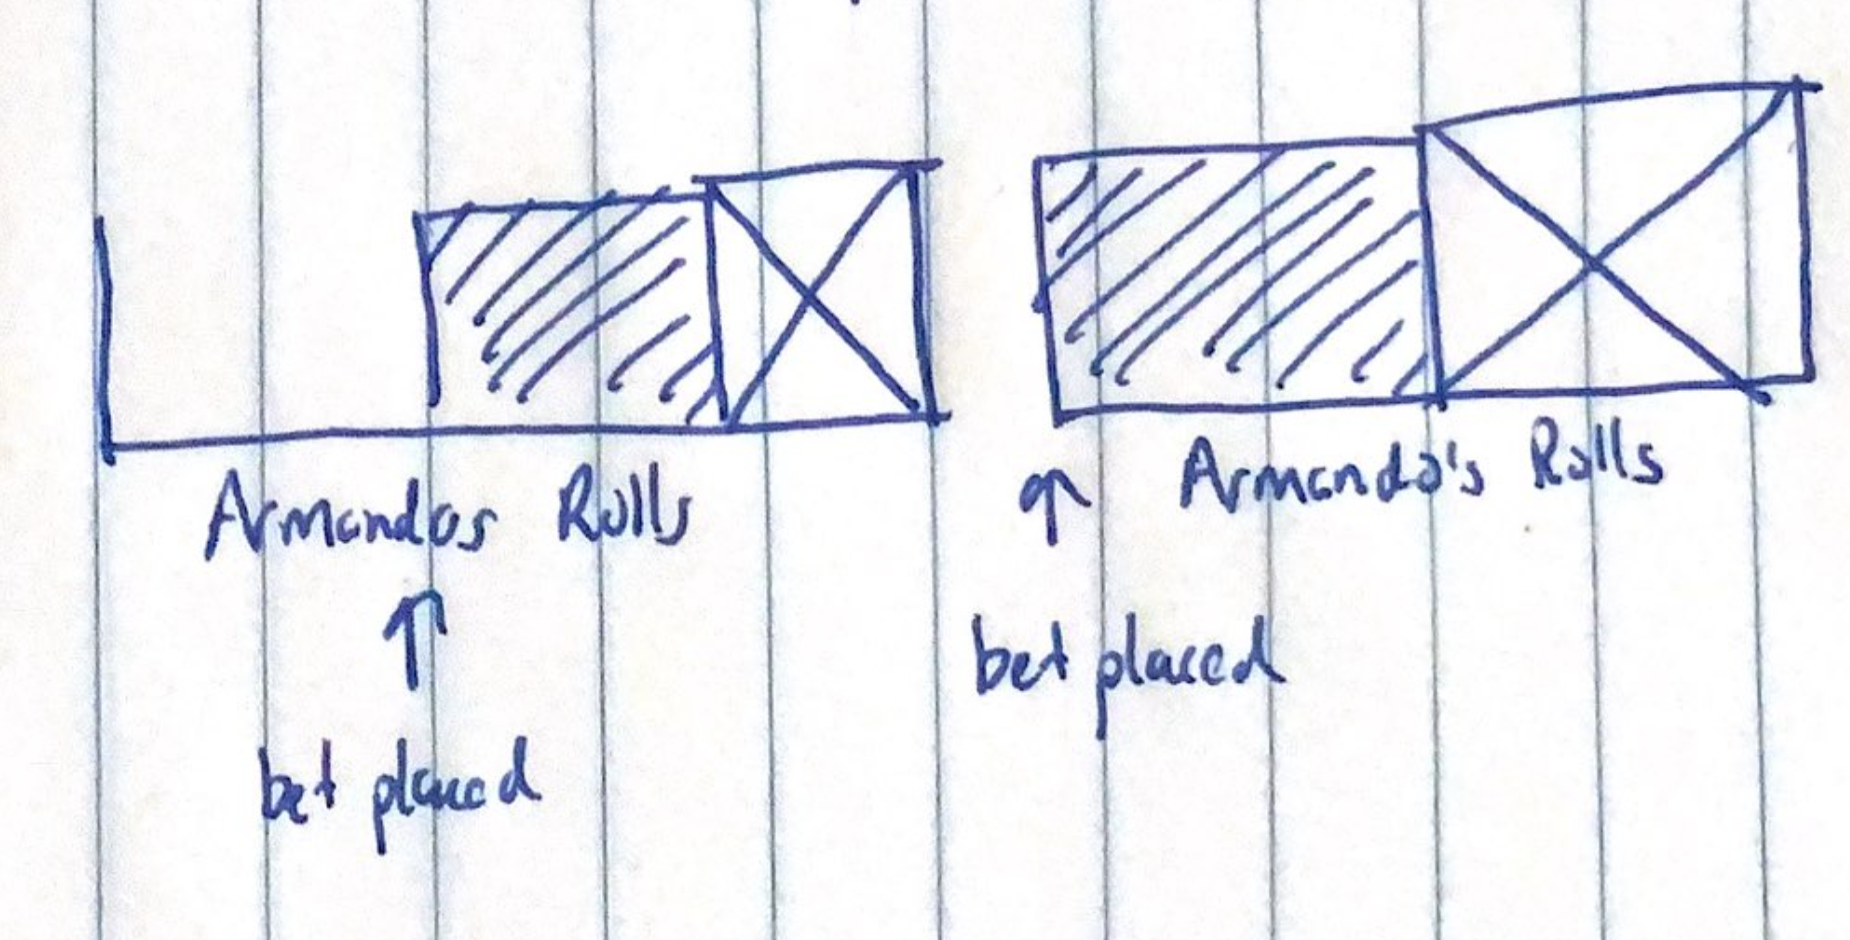 Armandos Rolls
bet placed
Armando's Rolls
bet placed